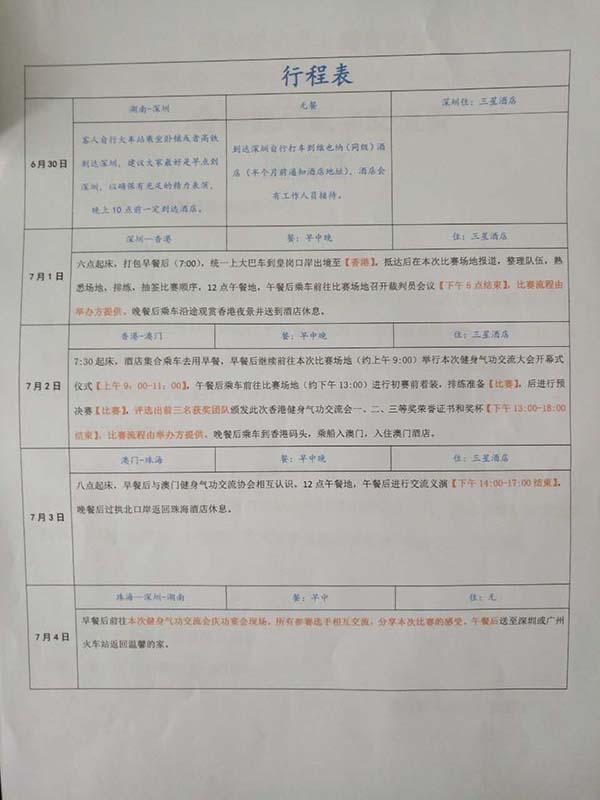 行程表
湖南-深圳 无餐 深圳住：三星酒店
6月30日
客人自行火车站乘坐卧铺或者高铁
到达深圳，建议大家最好是早点到
深圳，以确保有充足的精力表演，
晚上10点前一定到达酒店。
到达深圳自行打车到维也纳（同级）酒
店（半个月前通知酒店地址），酒店会
有工作人员接待。
深圳—香港 餐：早中晚 住：三星酒店
7月1日
六点起床，打包早餐后（7:00），统一上大巴车到皇岗口岸出境至【香港】，抵达后在本次比赛场地报道，整理队伍，熟
悉场地，排练，抽签比赛顺序，12点午餐地，午餐后乘车前往比赛场地召开裁判员会议【下午5点结束】，比赛流程由
举办方提供。晚餐后乘车沿途观赏香港夜景并送到酒店休息。
香港-澳门 餐：早中晚 住：三星酒店
7月2日
7:30起床，酒店集合乘车去用早餐，早餐后继续前往本次比赛场地（约上午9:00）举行本次健身气功交流大会开幕式
仪式【上午9：00-11：00】，午餐后乘车前往比赛场地（约下午13:00）进行初赛前着装，排练准备【比赛】，后进行预
决赛【比赛】，评选出前三名获奖团队颁发此次香港健身气功交流会一、二、三等奖荣誉证书和奖杯【下午13:00-18:00
结束】，比赛流程由举办方提供。晚餐后乘车到香港码头，乘船入澳门，入住澳门酒店。
澳门-珠海 餐：早中晚 住：三星酒店
7月3日
八点起床，早餐后与澳门健身气功交流协会相互认识，12点午餐地，午餐后进行交流义演【下午14:00-17:00结束】，
晚餐后过拱北口岸返回珠海酒店休息。
珠海—深圳-湖南 餐：早中 住：无
7月4日
早餐后前往本次健身气功交流会庆功宴会现场，所有参赛选手相互交流，分享本次比赛的感受，午餐后送至深圳或广州
火车站返回温馨的家。